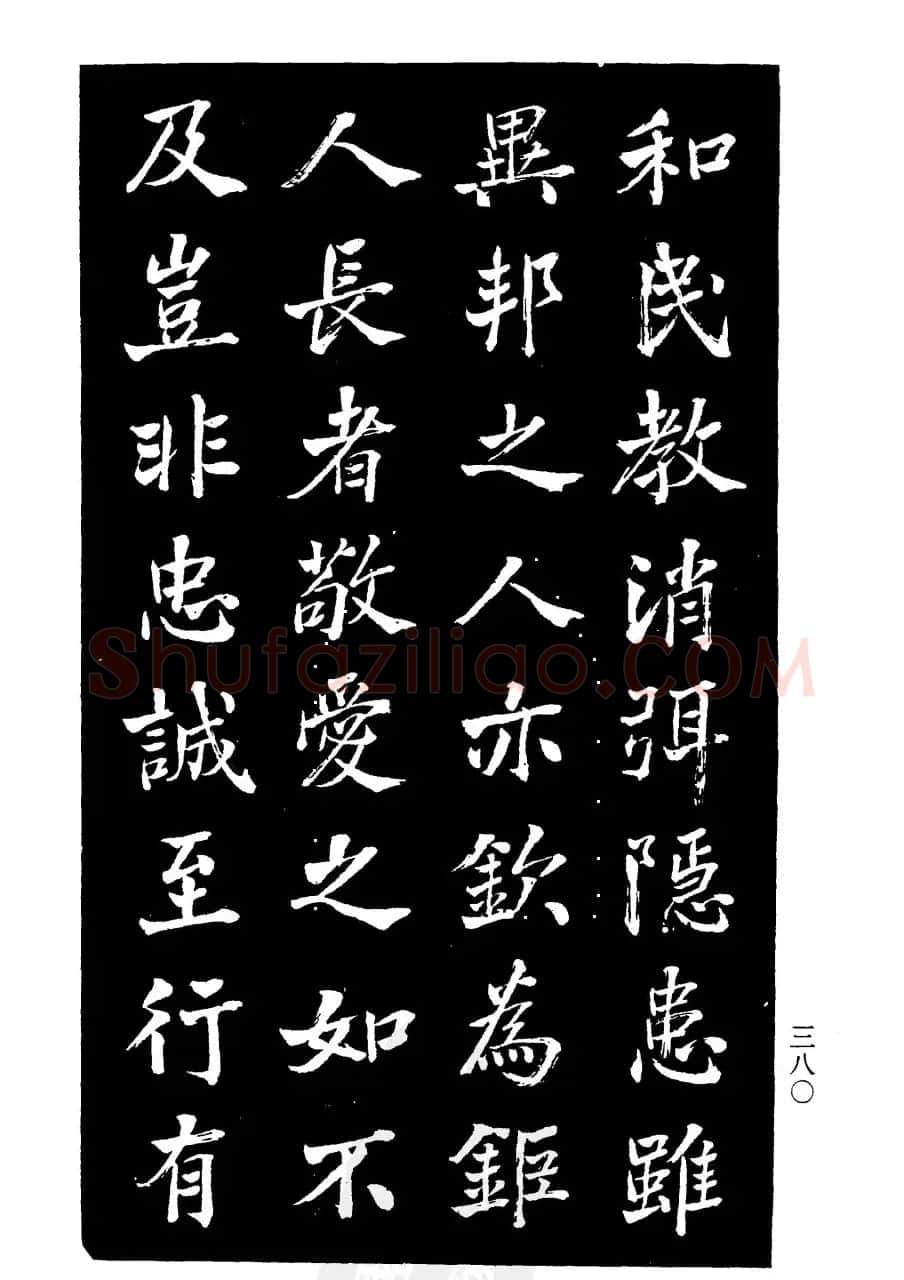 和民教消弭隱患雖
異邦之人亦欽為鉅
人長者敬愛之如不
及豈非忠誠至行有
三八〇
Shufaziliao.COM